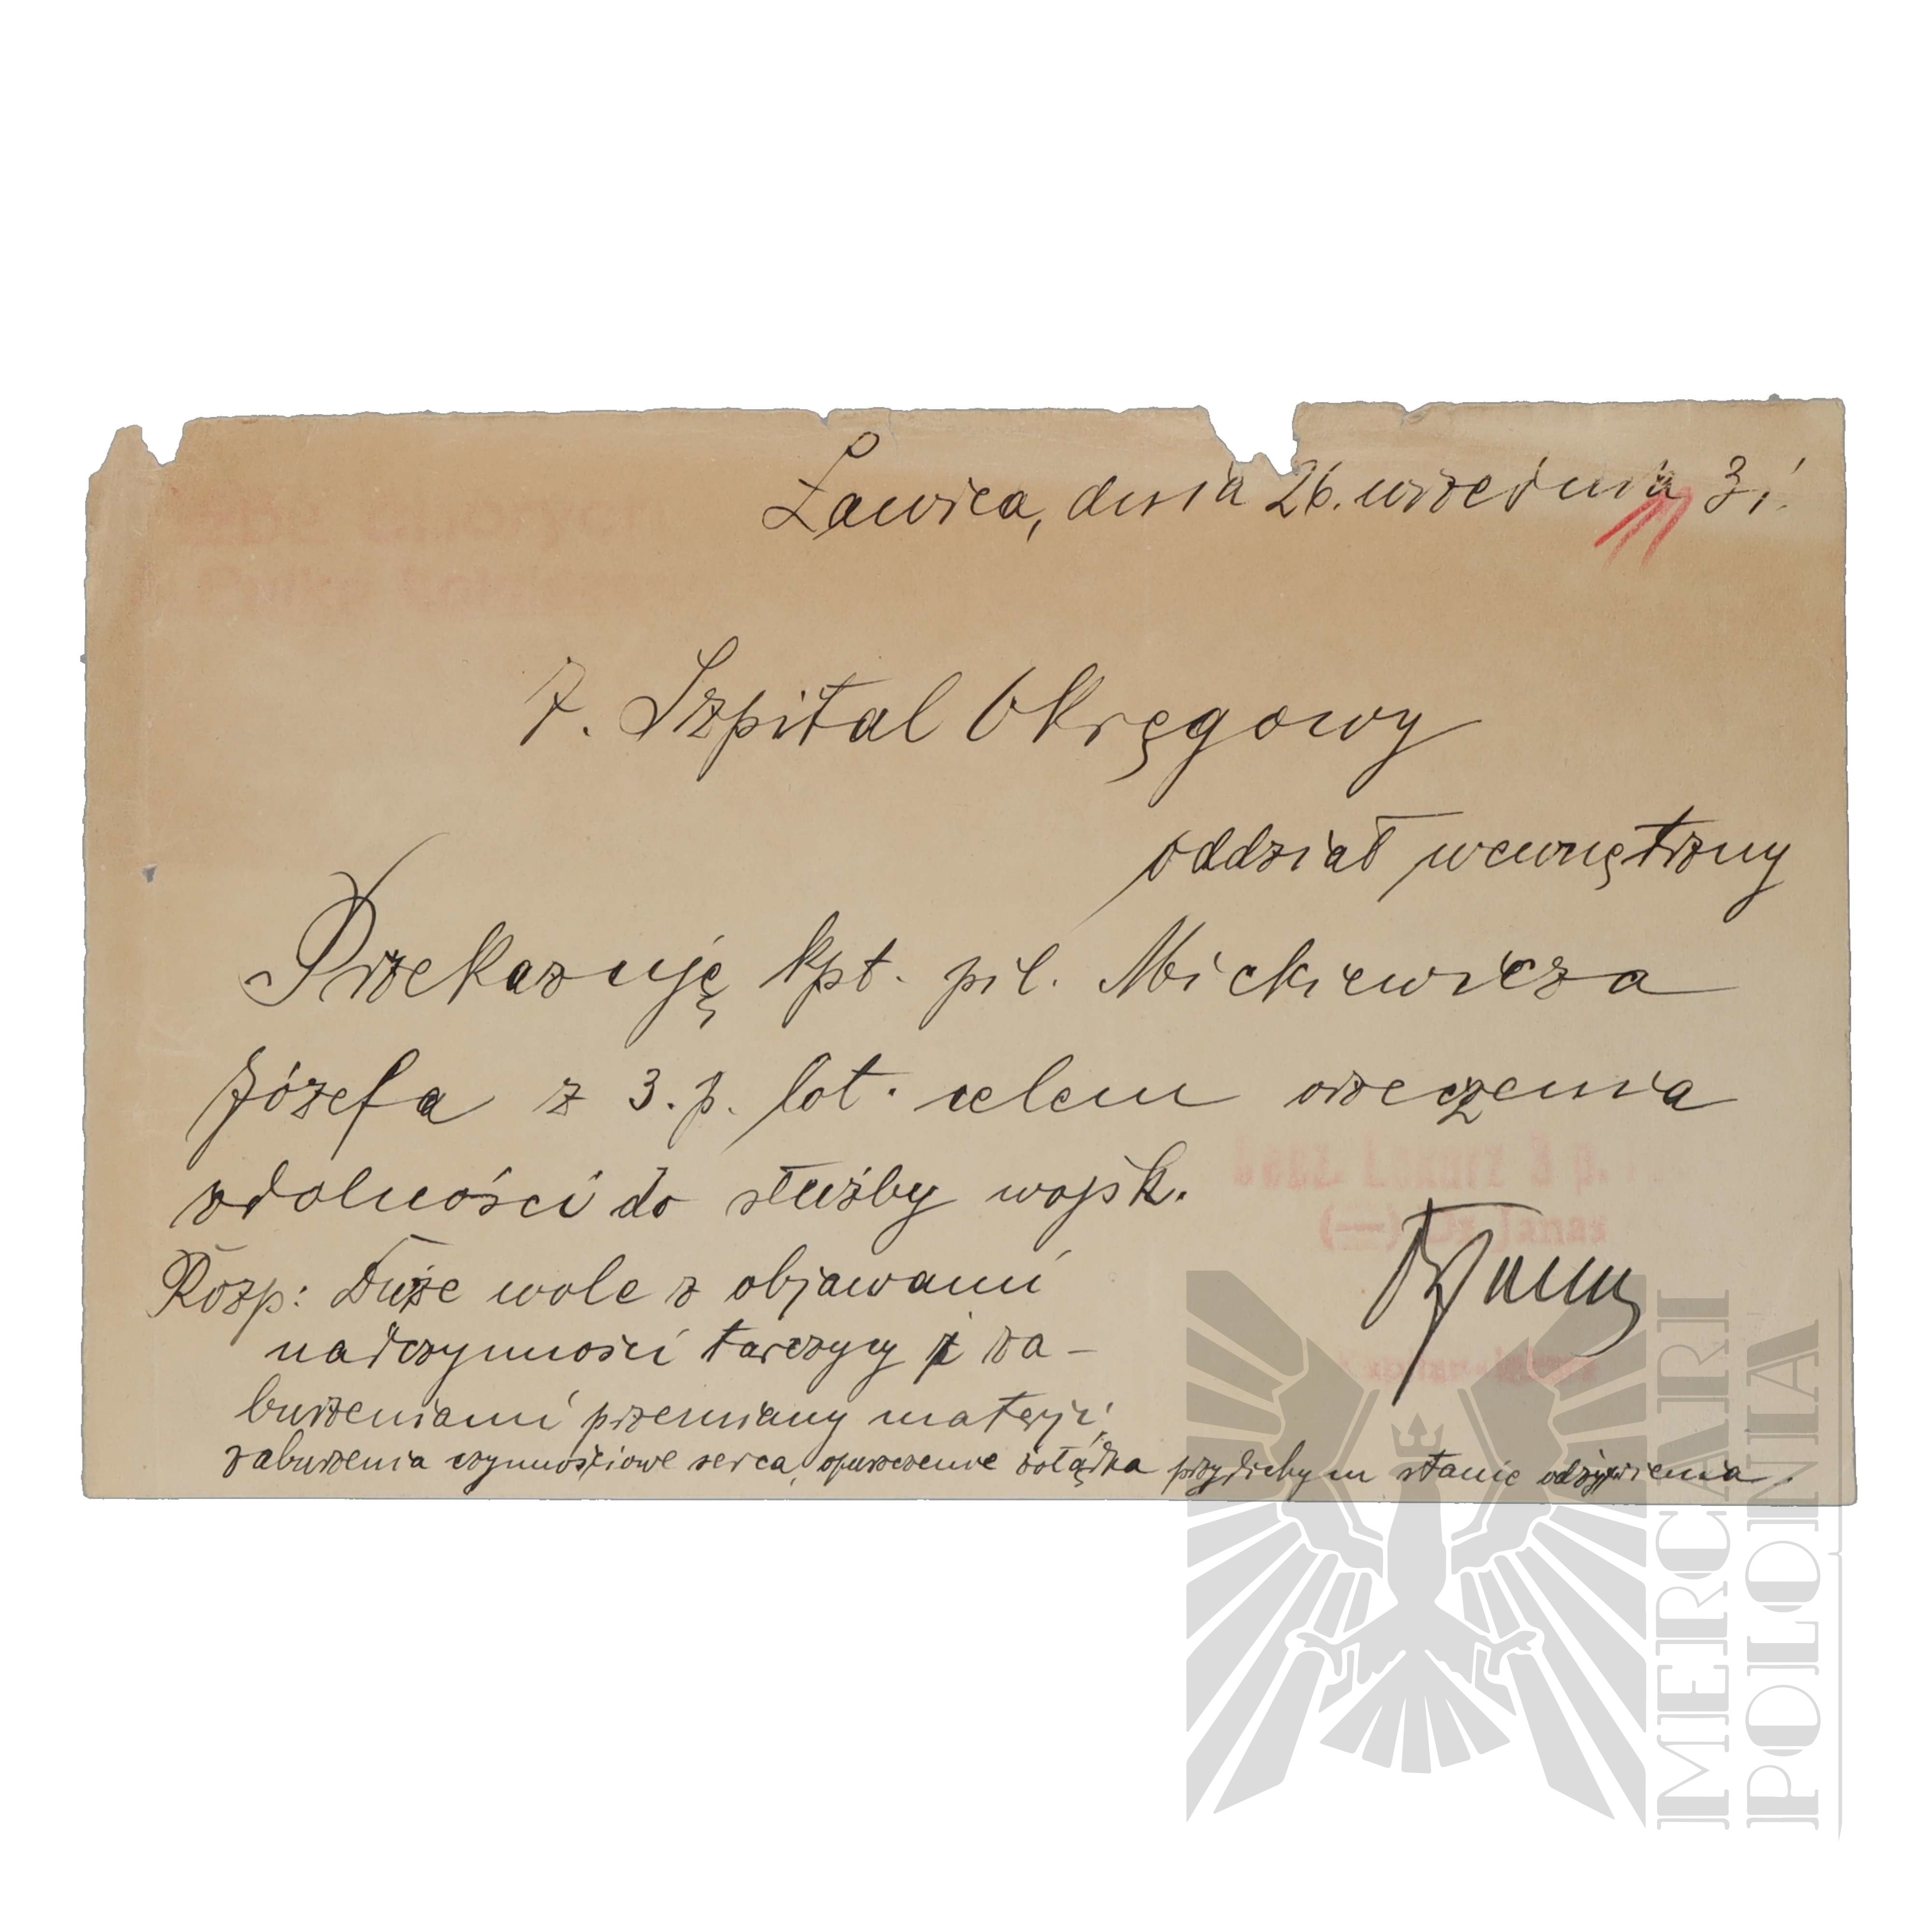 Ławica, dnia 26. września 31.
7. Szpital Okręgowy
oddział wewnętrzny
Przekazuję kpt. pil. Mickiewicza
Józefa z 3. p. lot. celem orzeczenia
zdolności do służby wojsk.
Lekarz 3 p.
(—) Dr Janas
Rozp: Duże wole z objawami
nadczynności tarczycy i za-
burzeniami przemiany materji,
zaburzenia czynnościowe serca, opuszczenie żołądka przy lichym stanie odżywienia.
MERCARI
POLONIA